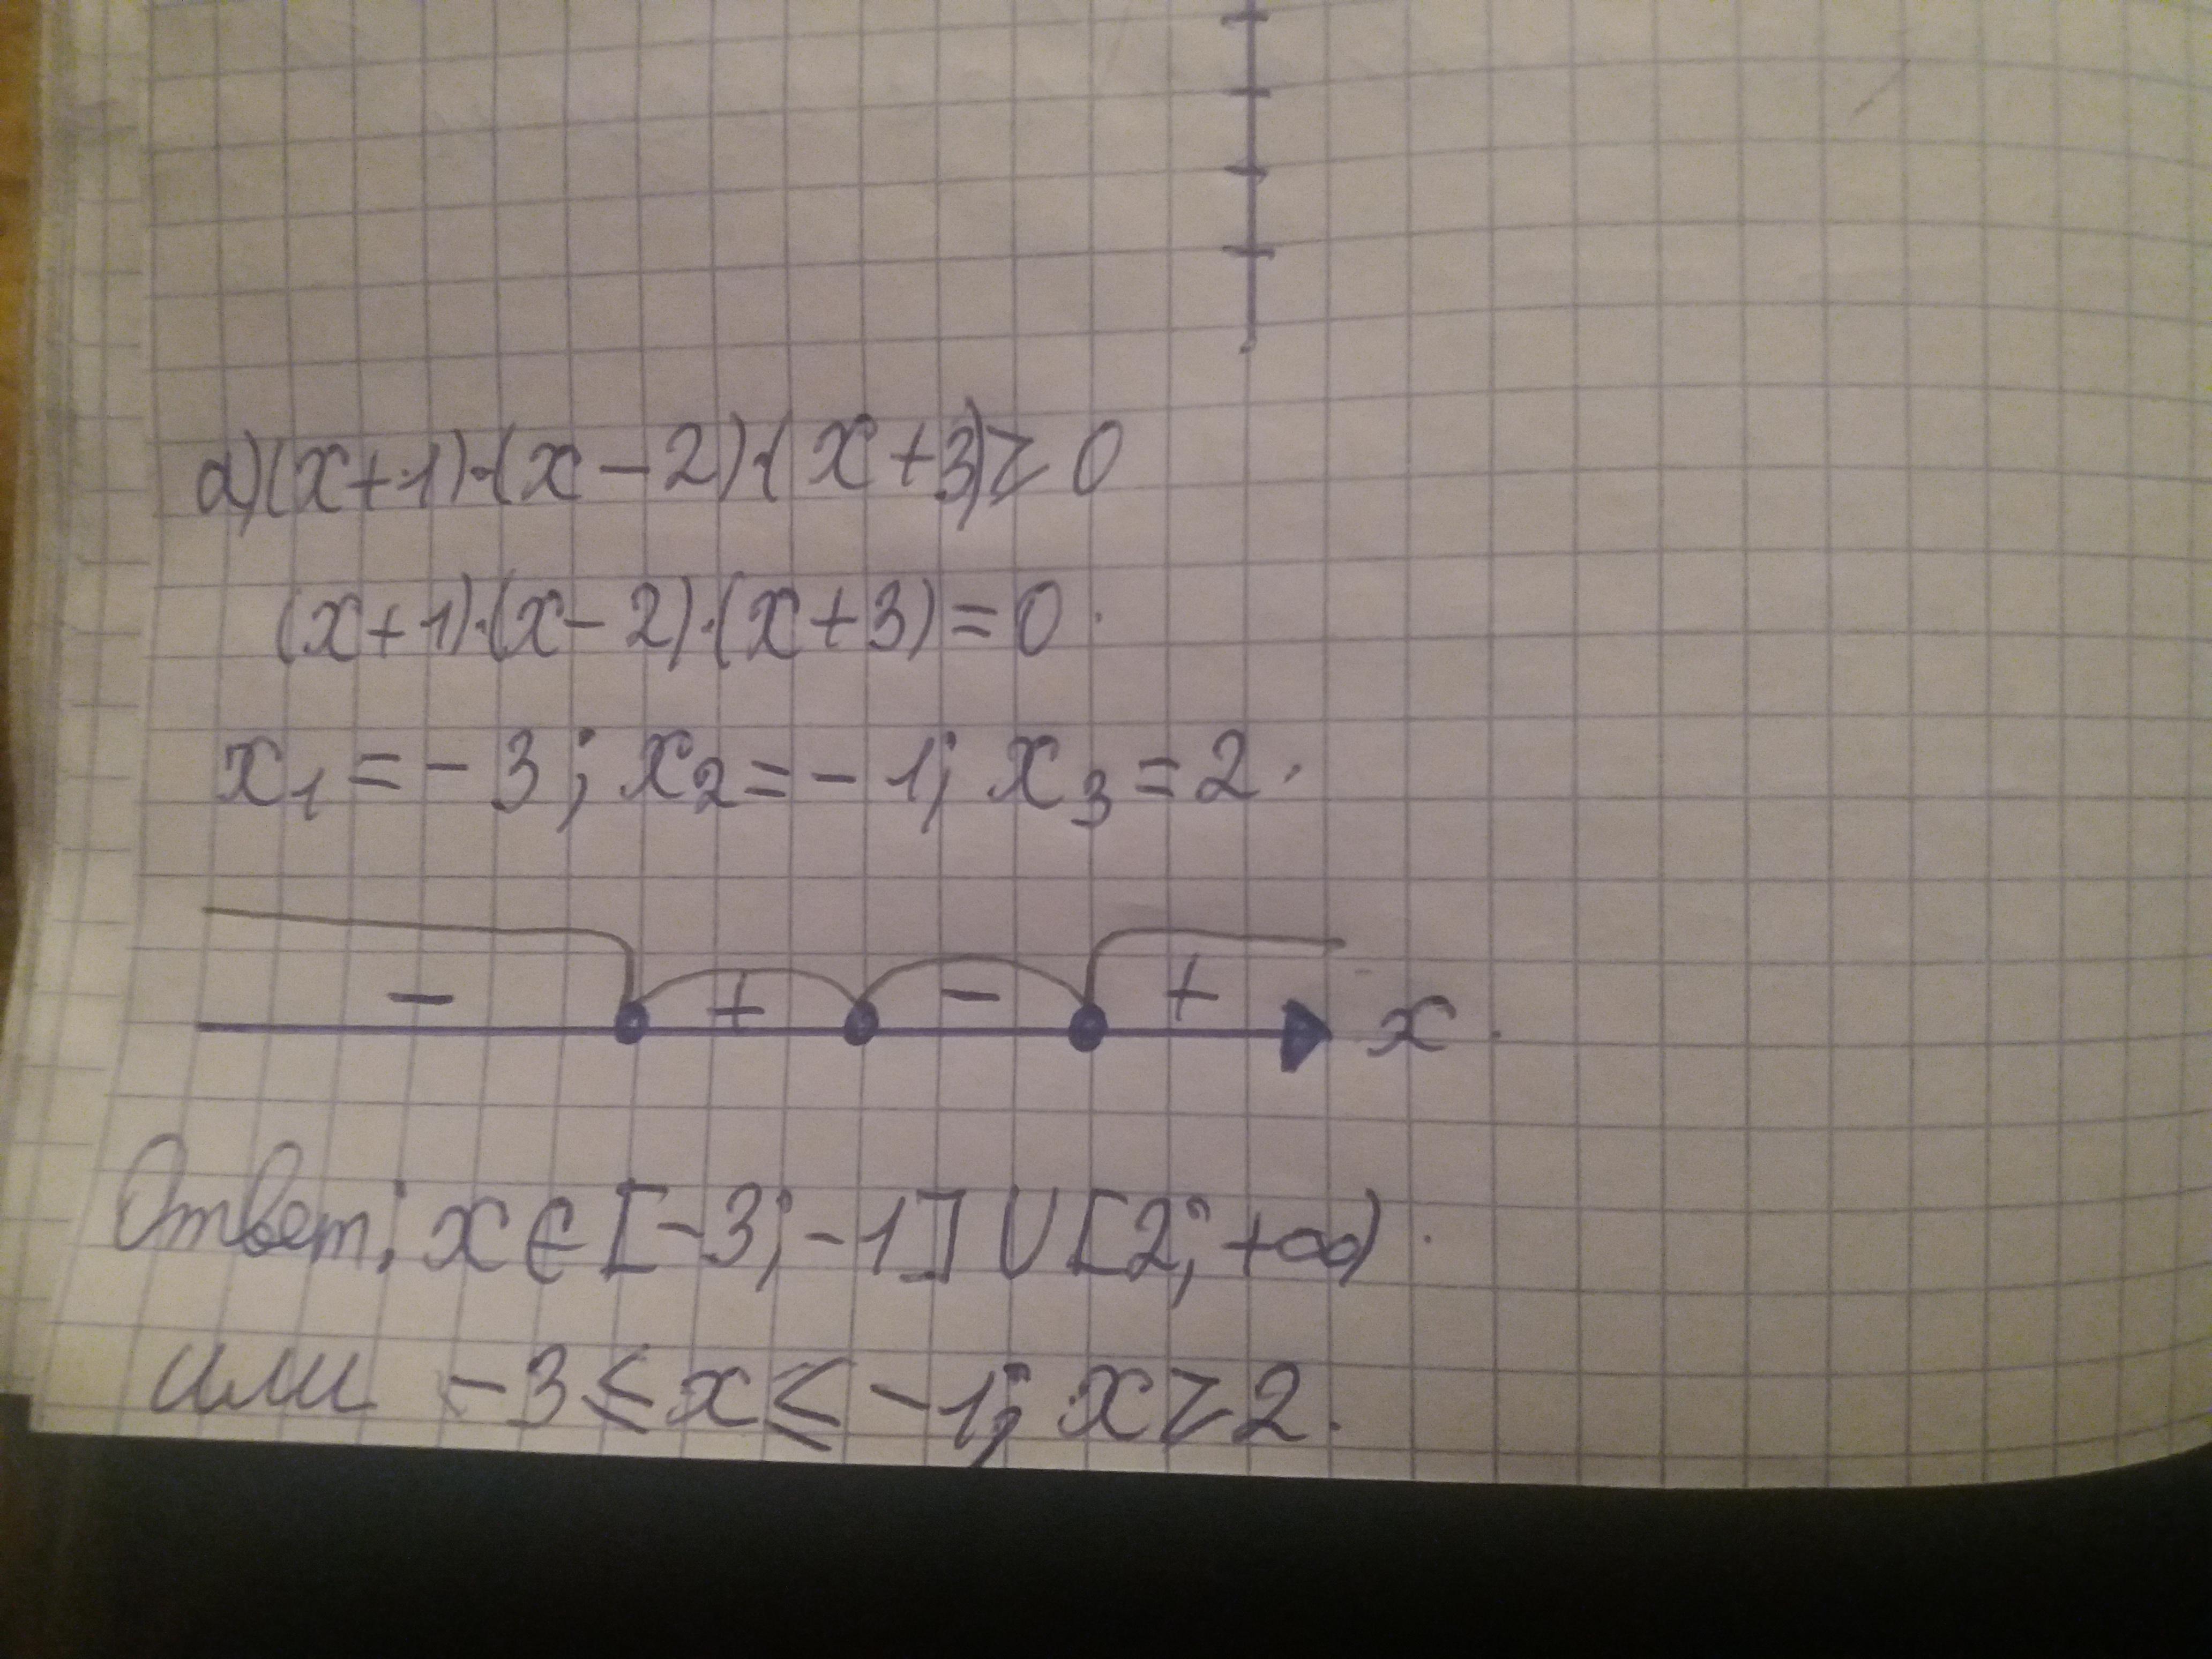 а)(x+1)·(x-2)·(x+3)≥0
(x+1)·(x-2)·(x+3)=0.
x₁=-3; x₂=-1; x₃=2.
- + - + x.
Ответ: x∈[-3;-1]∪[2;+∞).
или -3≤x≤-1; x≥2.